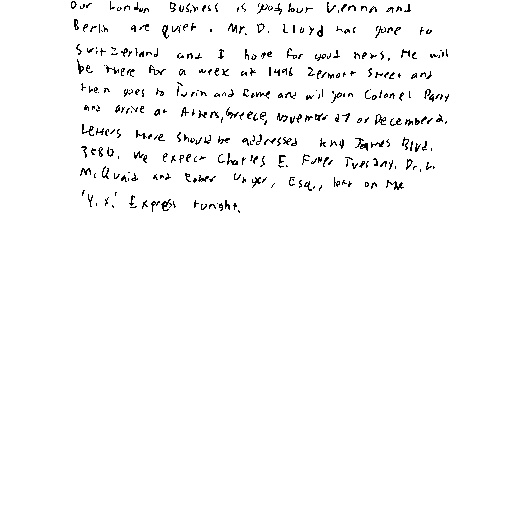 Our London Business is good, but Vienna and
Berlin are quiet. Mr. D. Lloyd has gone to
Switzerland and I hope for good news. He will
be there for a week at 1496 Zermott Street and
then goes to Turin and Rome and will join Colonel Parry
and arrive at Athens, Greece, November 27 or December 2.
Letters there should be addressed King James Blvd.
3580. We expect Charles E. Fuller Tuesday. Dr. L.
McQuaid and Robert Unger, Esq., left on the
'Y.X.' Express tonight.